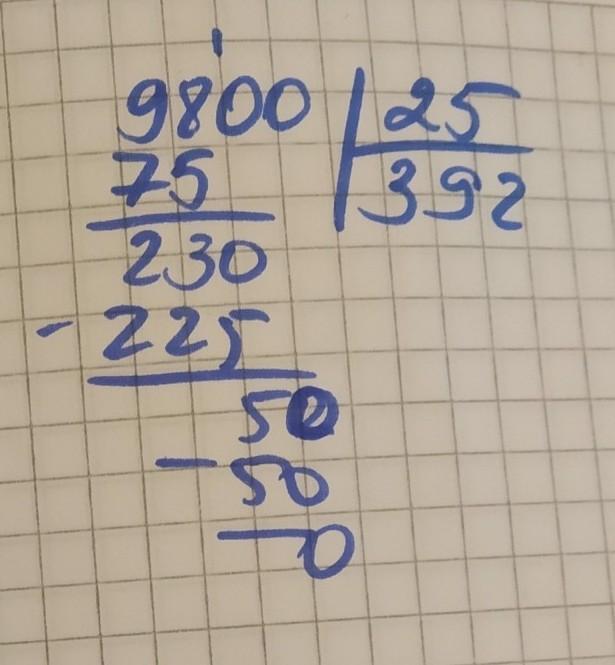 9800 | 25
75 | 392
230
- 225
50
- 50
0